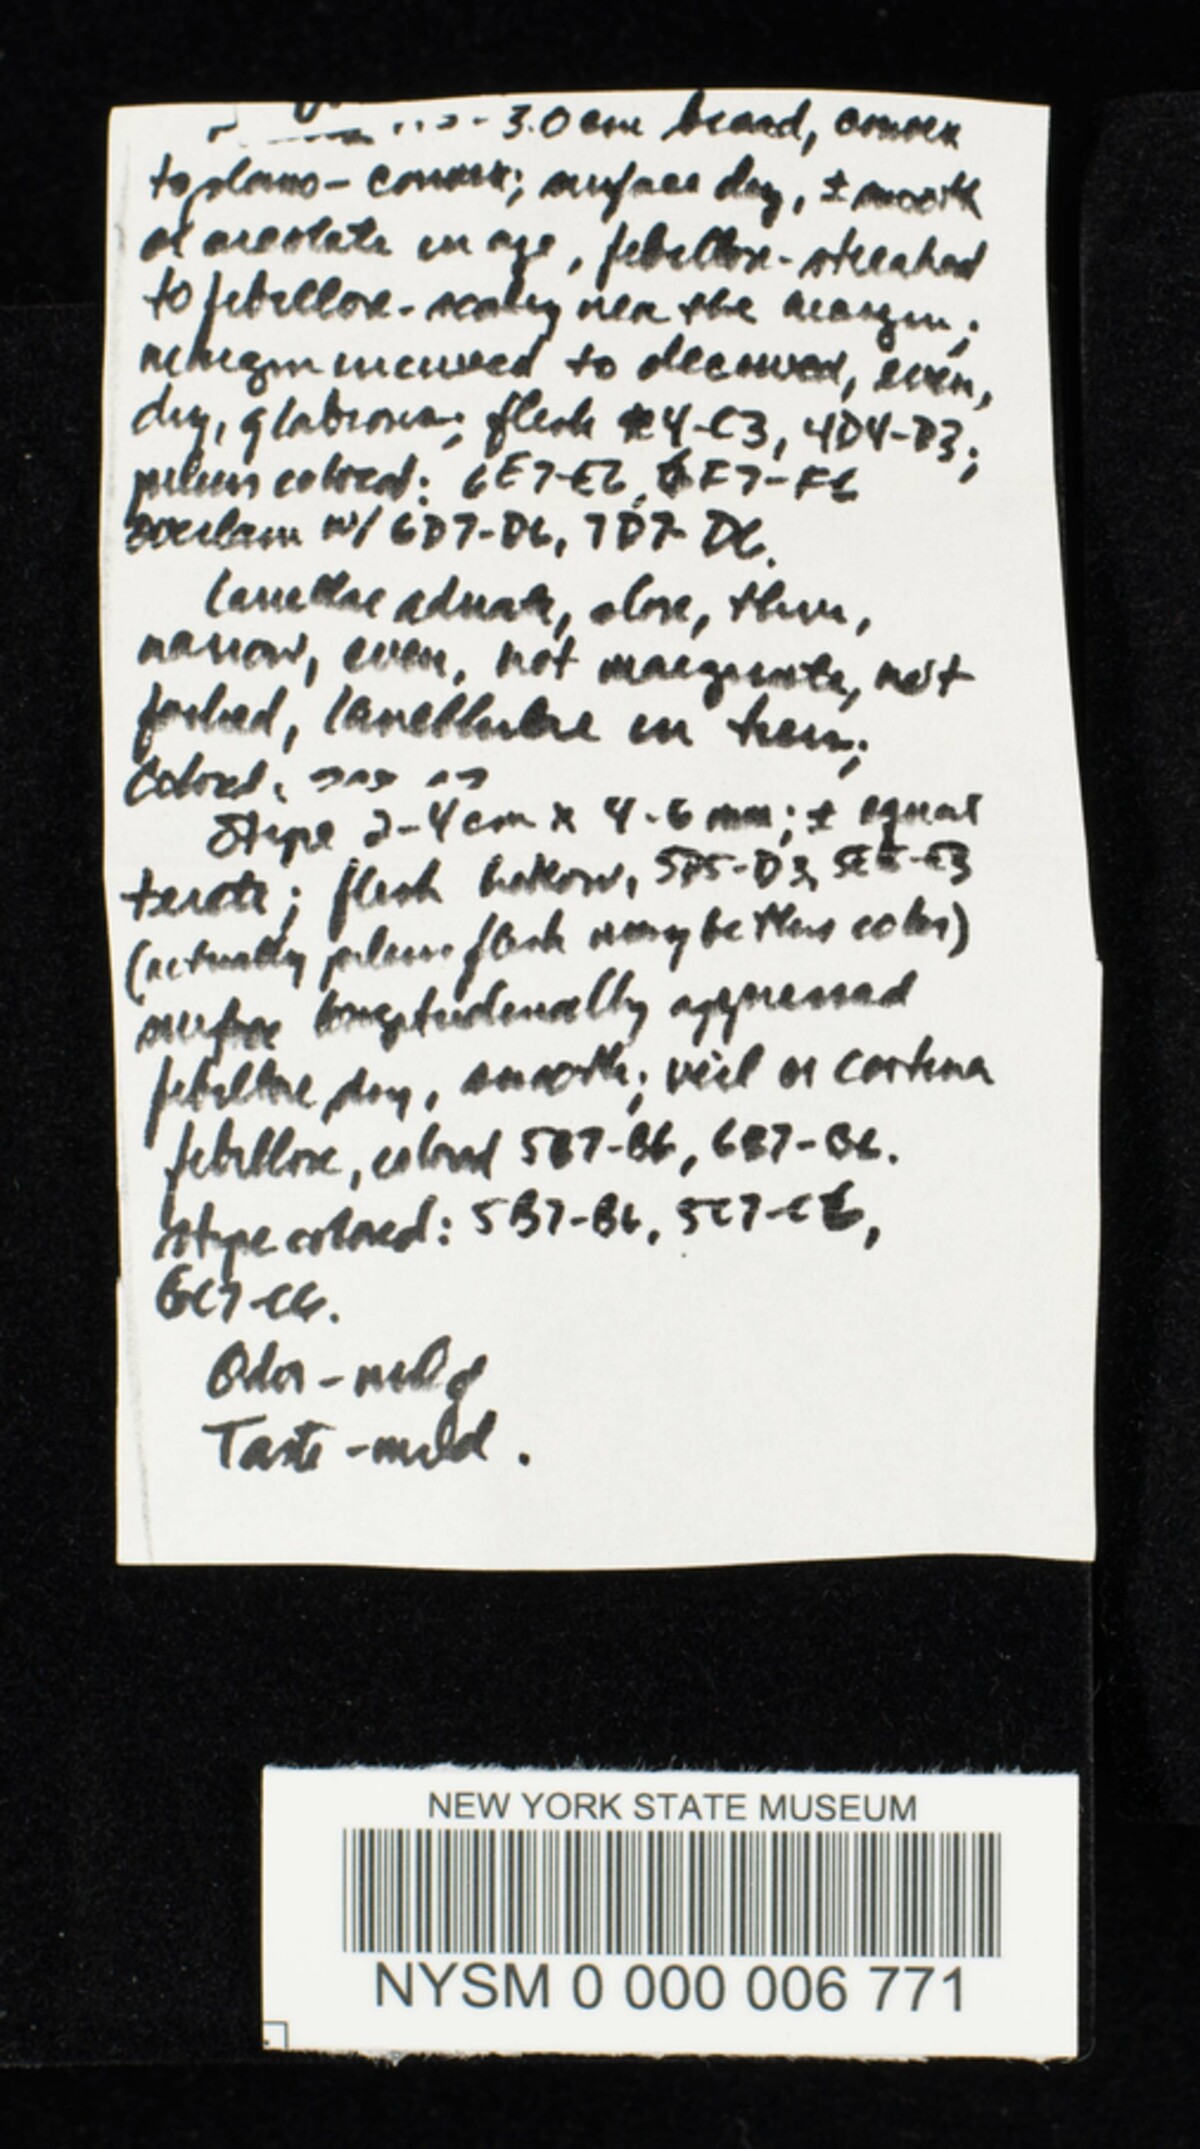 - 3.0 cm broad, convex
to plano-convex; surface dry, ± smooth
or areolate in age, fibrillose-streaked
to fibrillose-scaly near the margin;
margin incurved to decurved, even,
dry, glabrous; flesh 4-C3, 4D4-D3;
pileus colored: 6E7-E6, F7-F6
overlain w/ 6D7-D6, 7D7-D6.
Lamellae adnate, close, thin,
narrow, even, not marginate, not
forked, lamellulae in tiers;
colored:
Stipe 2-4 cm x 4-6 mm; ± equal
terete; flesh hollow, 5D5-D3, 5E5-E3
(actually pileus flesh may be this color)
surface longitudinally appressed
fibrillose, dry, smooth; veil or cortina
fibrillose, colored 5B7-B6, 6B7-B6.
stipe colored: 5B7-B6, 5C7-C6,
6C7-C6.
Odor - mild
Taste - mild.
NEW YORK STATE MUSEUM
NYSM 0 000 006 771